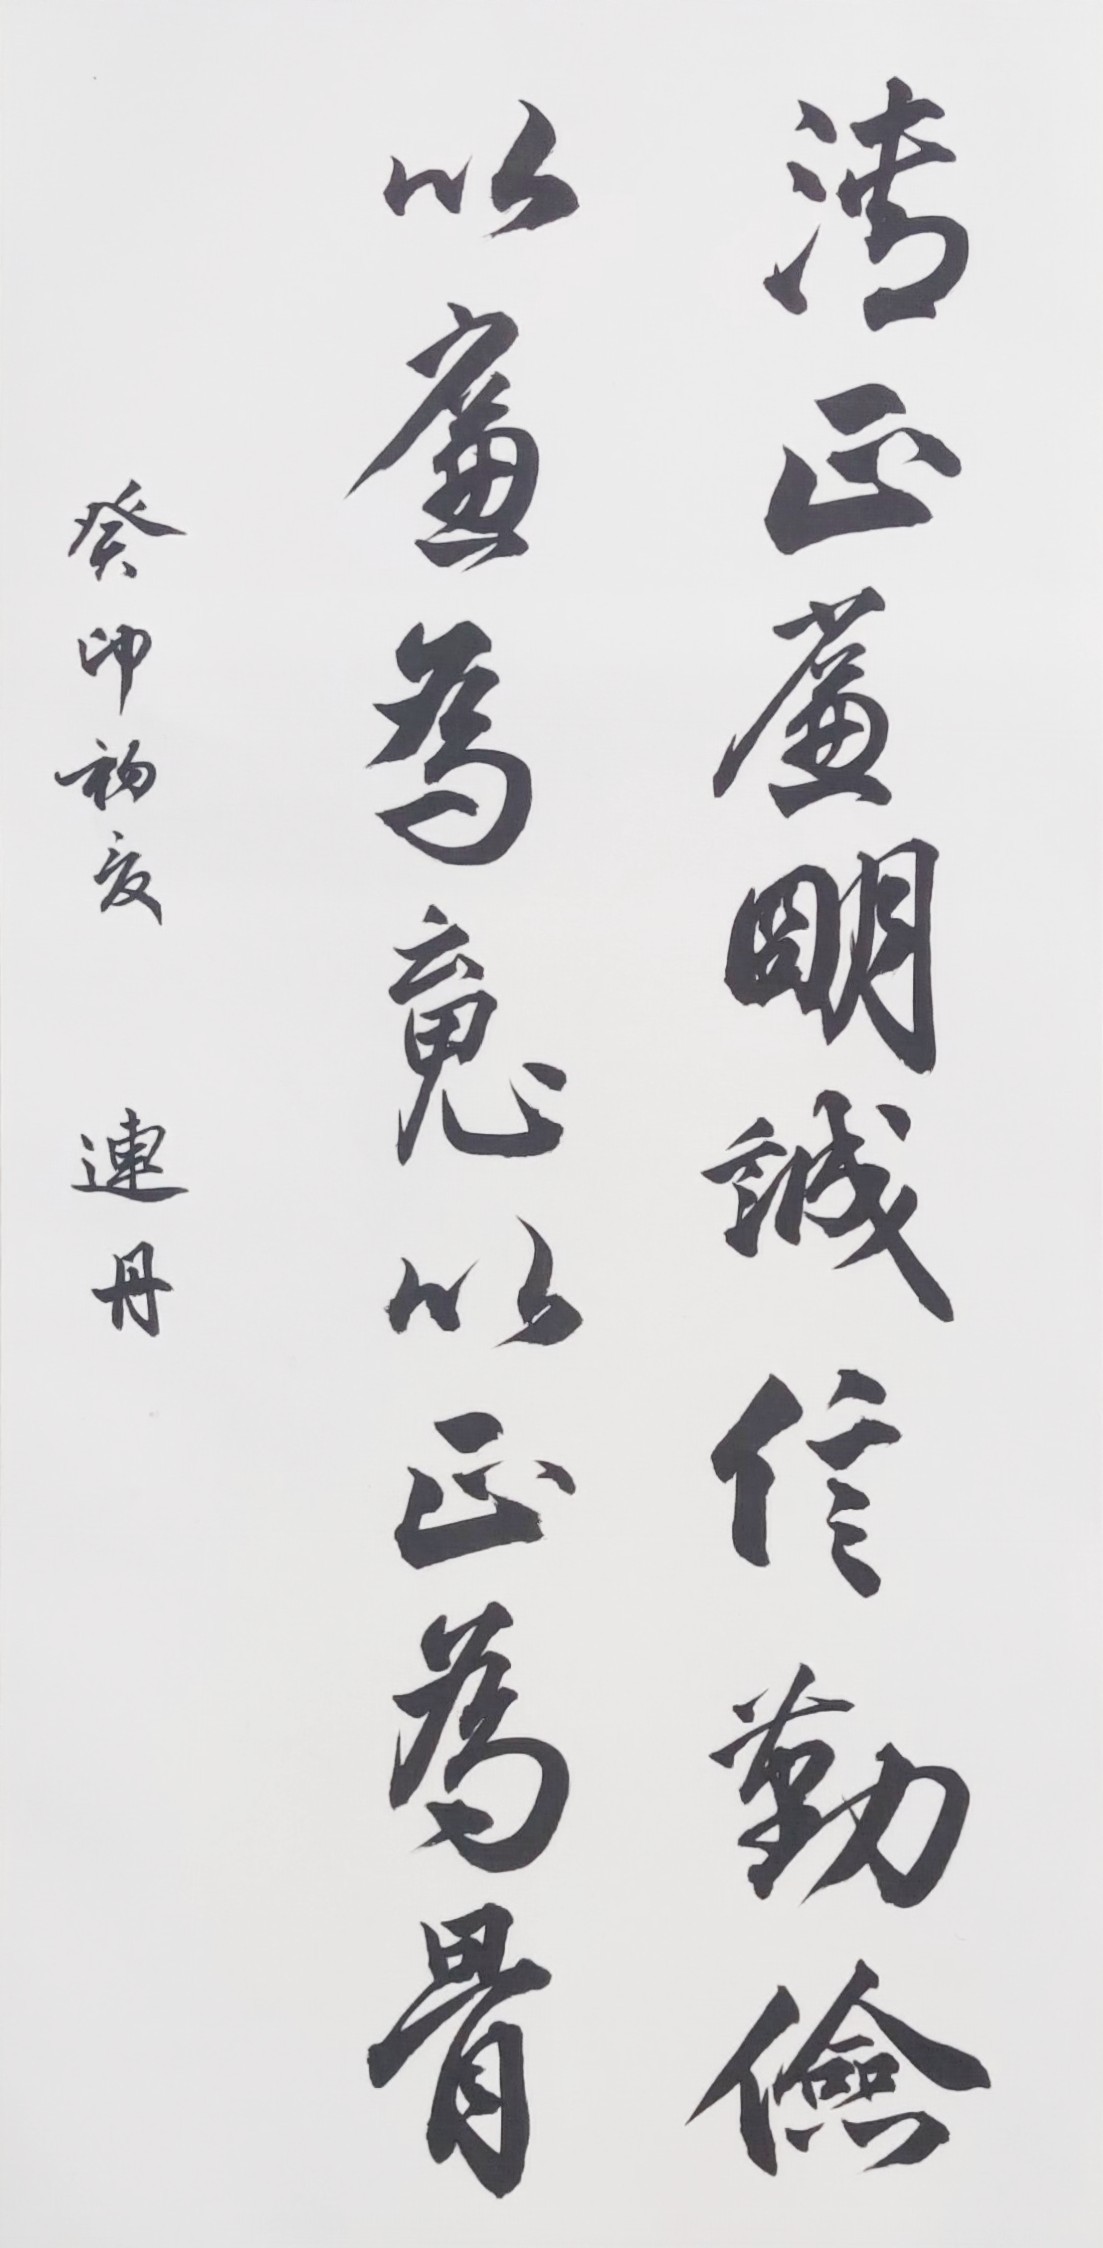 清正廉明誠信勤儉
以廉為魂以正為骨
癸卯初夏 連丹